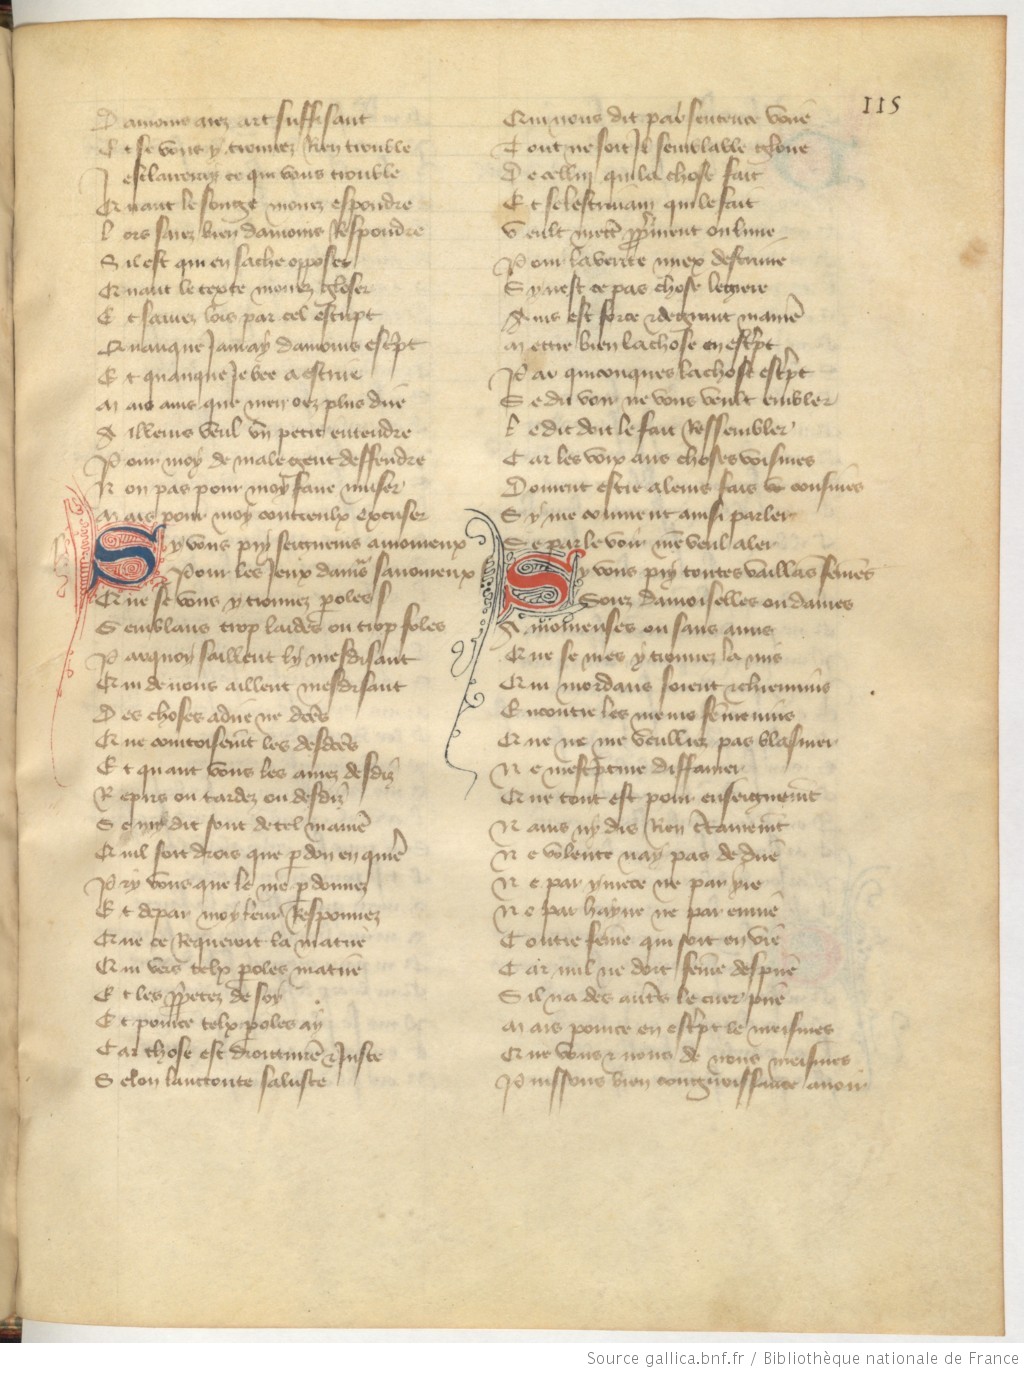 115
Damours arez art suffisant
Et se vous y trouvez Rien trouble
Jesclarciray ce qui vous trouble
Quant le songe morrez espondre
Lors sarez bien damours Respondre
Sil est qui en sache opposer
Quant le texte morrez gloser
Et sarrez lors par cel escript
Quanque Jauray damours escript
Et quanque Je bee a escrire
Mais ains que men oez plus dire
Ailleurs veul vn petit entendre
Pour moy de male gent deffendre
Non pas pour moy faire muser
Mais pour moy contreulx excuser
Sy vous pry seigneurs amoureux
Pour les Jeux damors sauoureux
Que se vous y trouuez poles
Semblans trop laides ou trop foles
Parquoy saillent ly mesdisant
Qui de nous aillent mesdisant
Des choses a dire ne dctes
Que courtoisemt les desdctes
Et quant vous les aurez desdiz
Repris ou tardez ou desdiz
Se my dit sont de tel manie
Quil soit drois que pdon en quie
Pry vous que le me pdonnez
Et depar moy leur Responnez
Que ce Requeroit la matiie
Qui vers telx poles matire
Et les ppretez de soy
Et pource telx poles ay
Car chose est droituriere & Juste
Selon lauctorite saluste
Qui nous dit par sentence voire
Tout ne soit Il semblable gloire
De cellui qui la chose fait
Et de lescriuain qui le fait
Veult mettre pprement ou liure
Pour la verite miex descriure
Sy nest ce pas chose legiere
Ains est force & de grant maniere
Mettre bien la chose en escpt
Car quiconques la chose escpt
Se du voir ne vous veult embler
Le dit doit le fait Ressembler
Car les voix aus choses voisines
Doiuent estre a leurs fais cousines
Sy me conuient ainsi parler
Se par le voir men veul aler
Sy vous pry toutes vaillans femes
Soiez damoiselles ou dames
Amoureuses ou sans amis
Que se mos y trouuez la mis
Qui mordans soient & chiennins
Encontre les meurs femenins
Que ne me veulliez pas blasmer
Ne mescpture diffamer
Que tout est pour enseignemt
Nains ny dis Rien ctainemt
Ne volente nay pas de dire
Ne par yurece ne par yre
Ne par hayne ne par enuie
Contre feme qui soit en vie
Car nul ne doit feme despire
Sil na des autres le cuer pire
Mais pource en escpt le meismes
Que vous & nous de nous meismes
Puissons bien congnoissance auoir
Source gallica.bnf.fr / Bibliothèque nationale de France